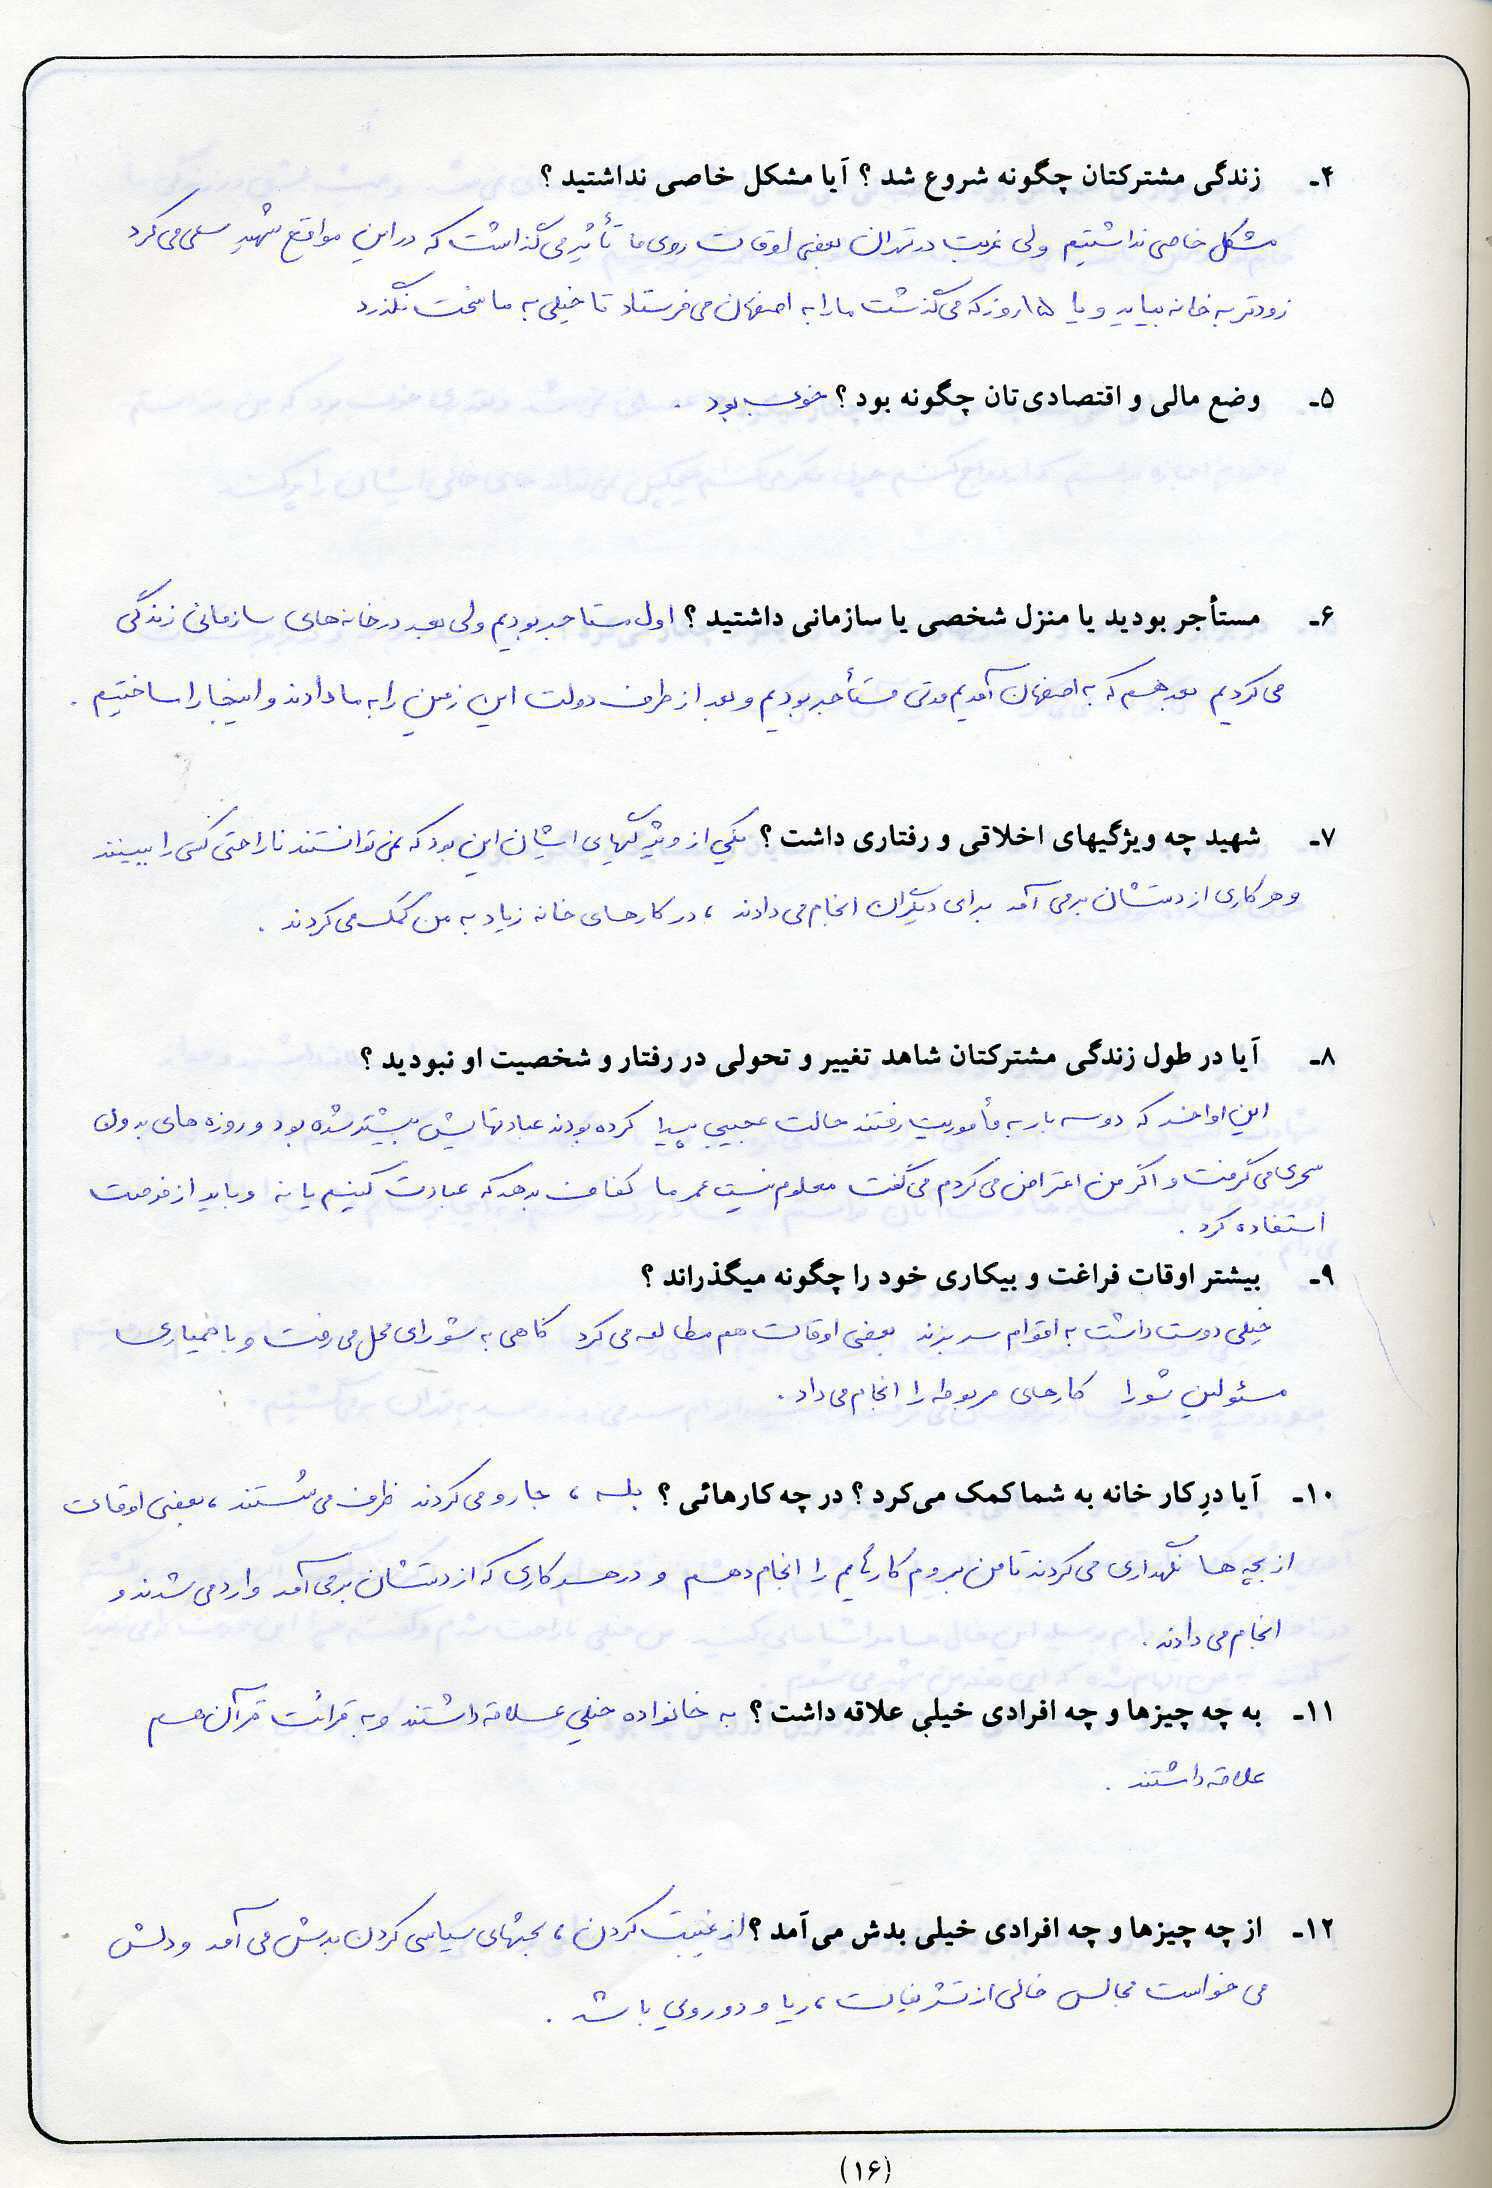 ۴ـ زندگی مشترکتان چگونه شروع شد ؟ آیا مشکل خاصی نداشتید ؟
مشکل خاصی نداشتیم ولی غربت در تهران بعضی اوقات روی ما تأثیر می گذاشت که در این مواقع شهید سعی می کرد
زودتر به خانه بیاید و یا ۱۵ روز که می گذشت ما را به اصفهان می فرستاد تا خیلی به ما سخت نگذرد
۵ـ وضع مالی و اقتصادی تان چگونه بود ؟ خوب بود .
۶ـ مستأجر بودید یا منزل شخصی یا سازمانی داشتید ؟ اول مستاجر بودیم ولی بعد در خانه های سازمانی زندگی
می کردیم بعد هم که به اصفهان آمدیم مدتی مستأجر بودیم و بعد از طرف دولت این زمین را به ما دادند و اینجا را ساختیم .
۷ـ شهید چه ویژگیهای اخلاقی و رفتاری داشت ؟ یکی از ویژگیهای ایشان این بود که نمی توانستند ناراحتی کسی را ببینند
و هر کاری از دستشان برمی آمد برای دیگران انجام می دادند ، در کارهای خانه زیاد به من کمک می کردند .
۸ـ آیا در طول زندگی مشترکتان شاهد تغییر و تحولی در رفتار و شخصیت او نبودید ؟
این اواخر که دو سه بار به مأموریت رفتند حالت عجیبی پیدا کرده بودند عبادتهایش بیشتر شده بود و روزه های بدون
سحری می گرفت و اگر من اعتراض می کردم می گفت معلوم نیست عمر ما کفاف بدهد که عبادت کنیم یا نه و باید از فرصت
استفاده کرد .
۹ـ بیشتر اوقات فراغت و بیکاری خود را چگونه میگذراند ؟
خیلی دوست داشت به اقوام سر بزند بعضی اوقات هم مطالعه می کرد گاهی به شورای محل می رفت و با همیاری
مسئولین شورا کارهای مربوطه را انجام می داد .
۱۰ـ آیا در کار خانه به شما کمک می کرد ؟ در چه کارهائی ؟ بله ، جارو می کردند ظرف می شستند ، بعضی اوقات
از بچه ها نگهداری می کردند تا من بروم کارهایم را انجام دهم و در هر کاری که از دستشان برمی آمد وارد می شدند و
انجام می دادند .
۱۱ـ به چه چیزها و چه افرادی خیلی علاقه داشت ؟ به خانواده خیلی علاقه داشتند و به قرائت قرآن هم
علاقه داشتند .
۱۲ـ از چه چیزها و چه افرادی خیلی بدش می آمد ؟ از غیبت کردن ، بحثهای سیاسی کردن بدش می آمد و دلش
می خواست مجالس خالی از تشریفات ، ریا و دورویی باشد .
(۱۶)